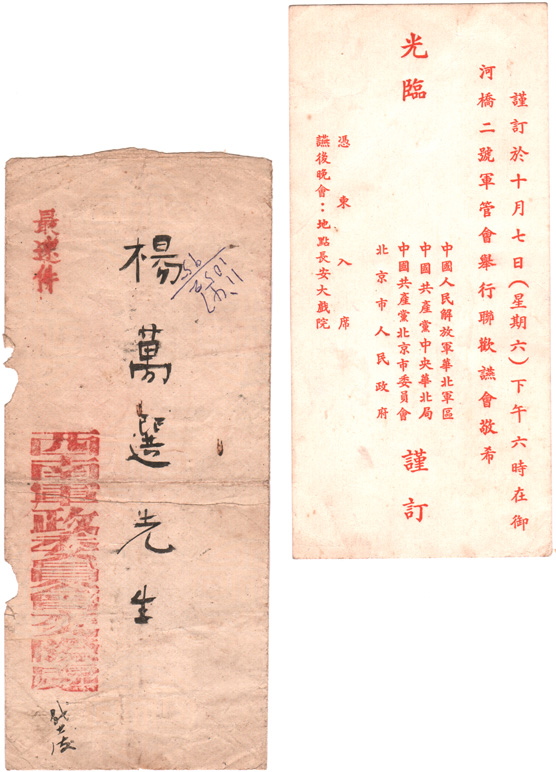 謹訂於十月七日(星期六)下午六時在御
河橋二號軍管會舉行聯歡讌會敬希
光臨
中國人民解放軍華北軍區
中國共產黨中央華北局
中國共產黨北京市委員會
北京市人民政府
謹訂
憑柬入席
讌後晚會：地點長安大戲院
楊萬選先生
最速件
西南軍政委員會交際處